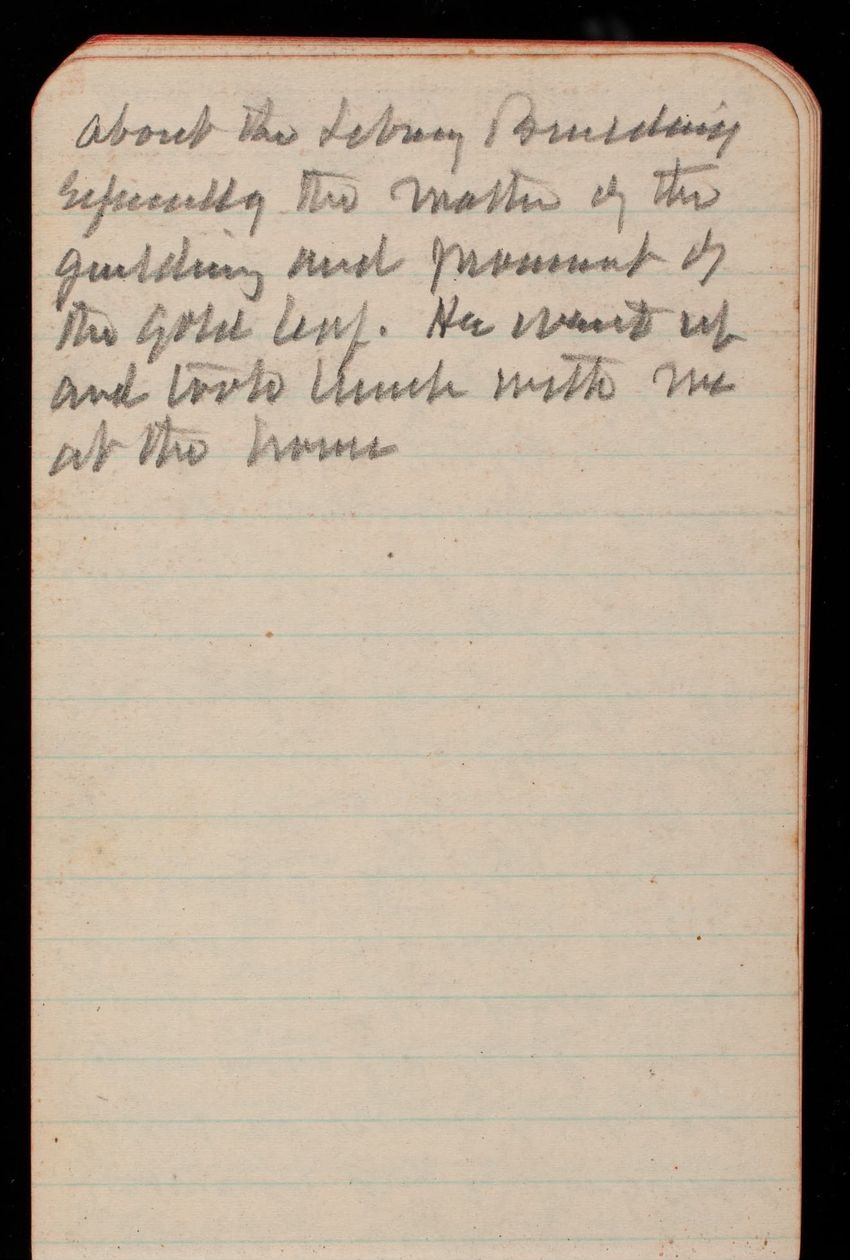 about the Library Building
Especially the matter of the
guilding and procurement of
the gold leaf. He went up
and took lunch with me
at the house